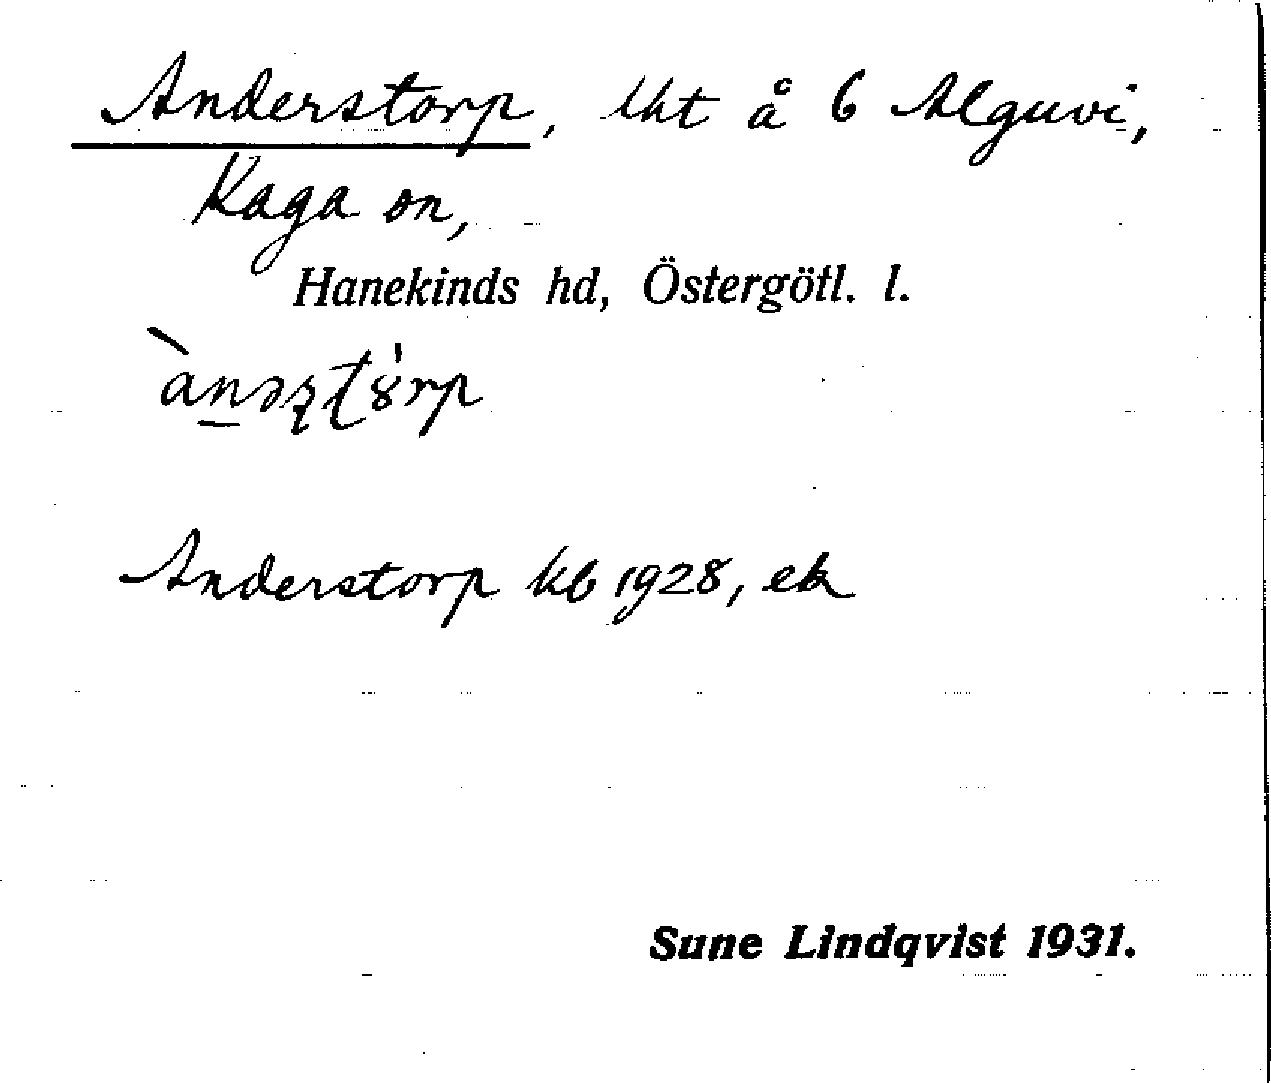 Anderstorp, lht å 6 Alguvi,
Kaga sn,
Hanekinds hd, Östergötl. l.
Anderstorp kb 1928, ek
Sune Lindqvist 1931.